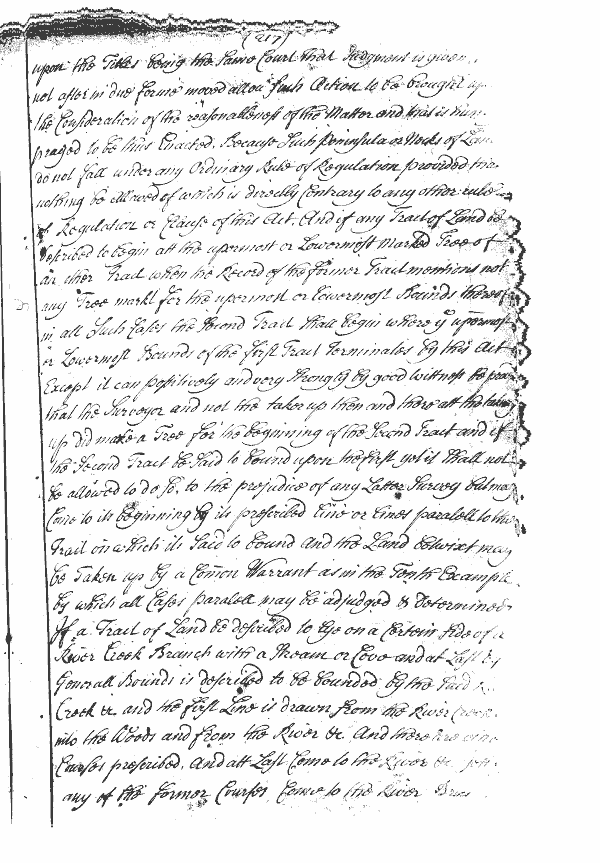 (217)
upon the Titles being the Same Court that Judgment is given
not after in due forme moved allow Such Action to be brought up
the Consideration of the reasonableness of the Matter and this is hum
prayed to be thus Enacted. Because Such Peninsula or Necks of Lan
do not fall under any Ordinary Rule of Regulation provided tha
nothing be allowed of which is directly Contrary to any other rule
of Regulation or Clause of this Act. And if any Tract of Land be
described to begin att the upermost or Lowermost Marked Tree of
an other Tract when the Record of the former Tract mentions not
any Tree markt for the upermost or Lowermost Bounds thereof
in all Such Cases the Second Tract Shall begin where ye upermost
or Lowermost Bounds of the first Tract Terminates by this Act
Except it can positively and very Strongly by good wittness be
that the Surveyor and not the taker up then and there att the
up did make a Tree for the beginning of the Second Tract and if
the Second Tract be Said to bound upon the first yet it Shall not
be allowed to do So, to the prejudice of any Latter Survey but may
Come to its beginning by its prescribed Line or Lines paralell to the
Tract on which its Said to bound And the Land betwixt may
be Taken up by a Comon Warrant as in the Tenth Example
by which all Cases paralell may be adjudged & determined
If a Tract of Land be described to Lye on a Certain Side of a
River Creek Branch with a Stream or Cove and at Last by
Generall Bounds is described to be bounded by the Said
Creek &c. and the first Line is drawn from the River Creek
into the Woods and from the River &c. And there are
Courses prescribed, And att Last Come to the River &c.
any of the former Courses Come to the River